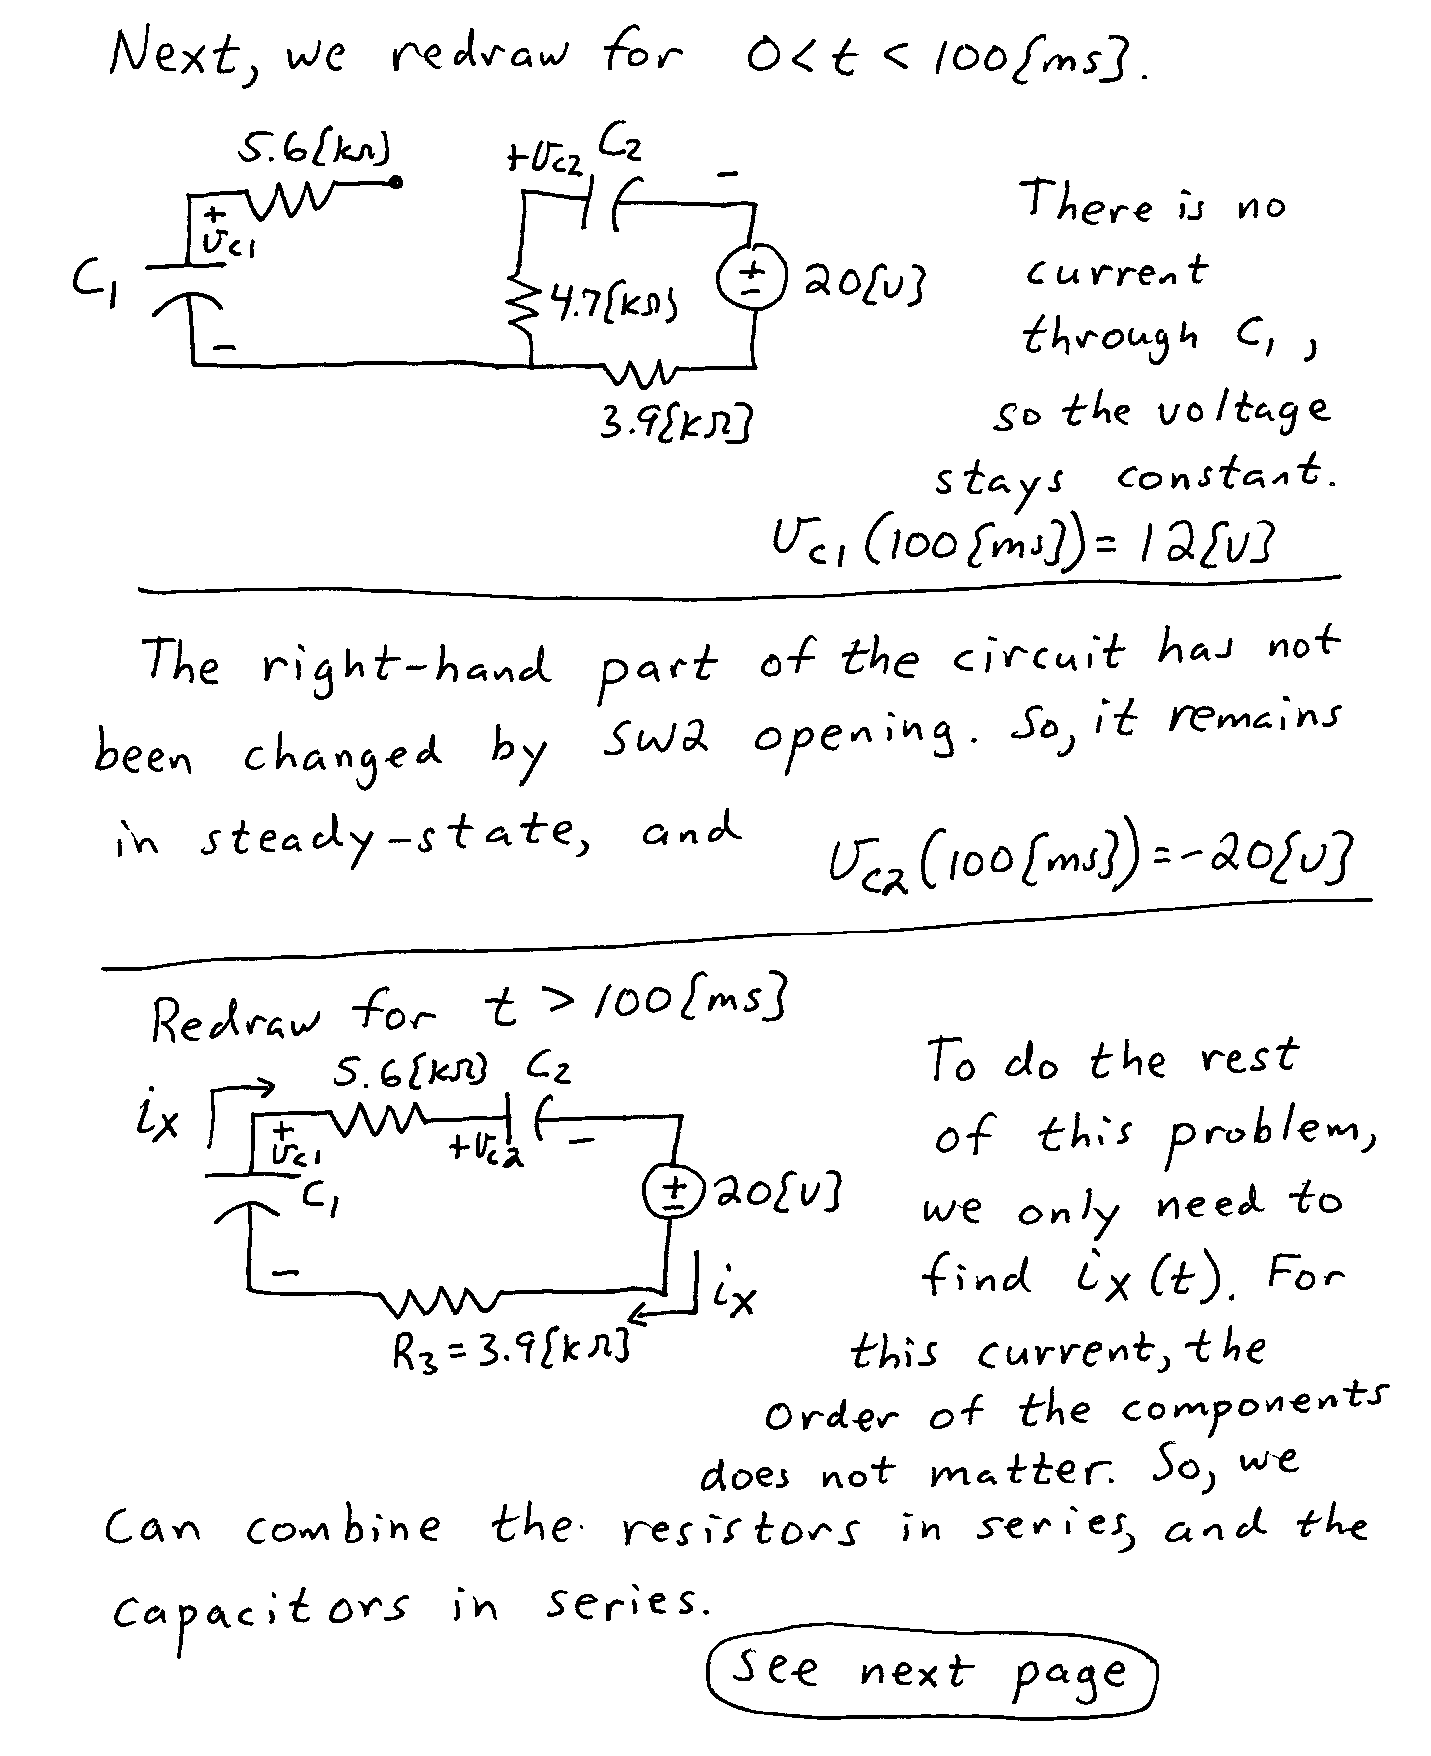 Next, we redraw for 0<t<100[ms].
5.6[kΩ]
+vc2 C2 -
+
vc1
C1
-
4.7[kΩ]
+
-
20[v]
3.9[kΩ]
There is no
current
through C1,
so the voltage
stays constant.
vc1(100[ms])=12[v]
The right-hand part of the circuit has not
been changed by SW2 opening. So, it remains
in steady-state, and vc2(100[ms])=-20[v]
Redraw for t>100[ms]
5.6[kΩ] C2
ix
+
vc1
+vc2 -
C1
+
-
20[v]
-
ix
R3=3.9[kΩ]
To do the rest
of this problem,
we only need to
find ix(t). For
this current, the
order of the components
does not matter. So, we
can combine the resistors in series, and the
capacitors in series.
see next page